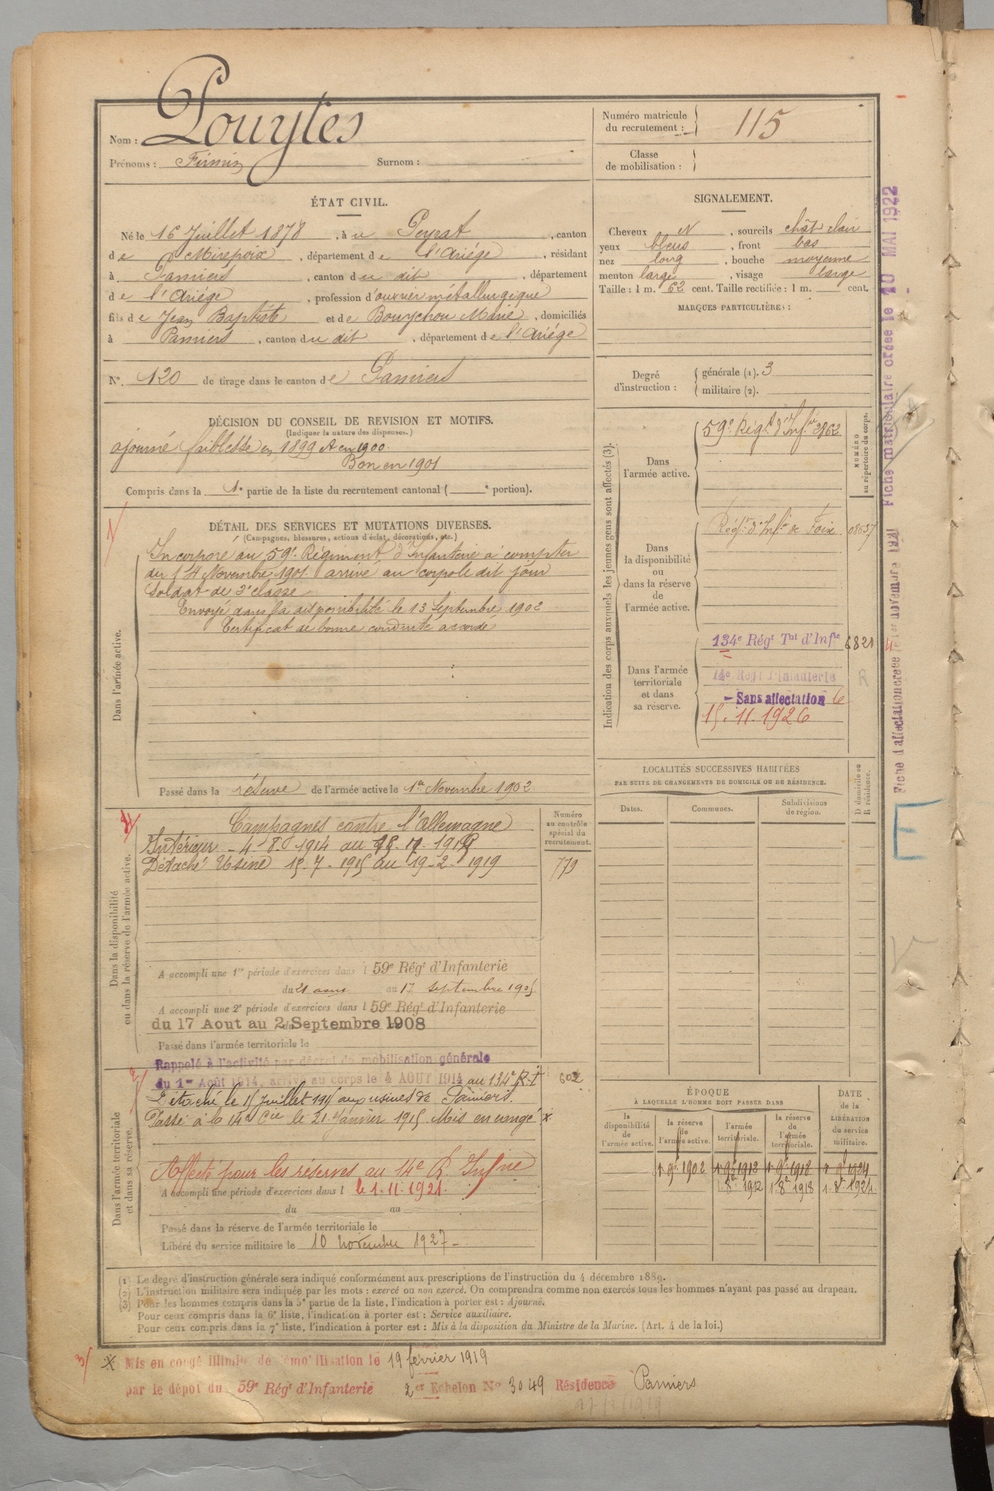 Nom : Pouytes
Prénoms : Firmin Surnom :
Numéro matricule du recrutement : 115
Classe de mobilisation :
ÉTAT CIVIL.
Né le 16 Juillet 1878, à u Peyrat, canton
de Mirepoix, département de l'Ariége, résidant
à Pamiers, canton du dit, département
de l'Ariége, profession d'ouvrier métallurgique
fils de Jean Baptiste et de Bouychou Marie, domiciliés
à Pamiers, canton du dit, département de l'Ariége
N° 120 de tirage dans le canton de Pamiers
SIGNALEMENT.
Cheveux N, sourcils chât clair
yeux bleus, front bas
nez long, bouche moyenne
menton large, visage large
Taille : 1 m. 62 cent. Taille rectifiée : 1 m. cent.
MARQUES PARTICULIÈRES :
Degré d'instruction : générale (1). 3
militaire (2).
DÉCISION DU CONSEIL DE REVISION ET MOTIFS.
(Indiquer la nature des dispenses.)
ajourné faiblesse en 1899 A en 1900
Bon en 1901
Compris dans la 1e partie de la liste du recrutement cantonal ( e portion).
DÉTAIL DES SERVICES ET MUTATIONS DIVERSES.
(Campagnes, blessures, actions d'éclat, décorations, etc.)
Dans l'armée active.
Incorporé au 59e Régiment d'Infanterie à compter
du 14 Novembre 1901 arrivé au corps le dit jour
soldat de 2e classe
Envoyé dans la disponibilité le 13 Septembre 1902
Certificat de bonne conduite accordé
Passé dans la réserve de l'armée active le 1er Novembre 1902
Indication des corps auxquels les jeunes gens sont affectés (3).
NUMÉRO au répertoire du corps.
Dans l'armée active.
59e Régt d'Infie 3862
Dans la disponibilité ou dans la réserve de l'armée active.
Régt d'Infie de Foix
Dans l'armée territoriale et dans sa réserve.
134e Régt Tal d'Infie 6821
14e Régt d'Infanterie
- Sans affectation 6
15.11.1926
LOCALITÉS SUCCESSIVES HABITÉES
PAR SUITE DE CHANGEMENTS DE DOMICILE OU DE RÉSIDENCE.
Dates. Communes. Subdivisions de région. D domicile ou R résidence.
Dans la disponibilité ou dans la réserve de l'armée active.
Numéro au contrôle spécial du recrutement.
Campagnes contre l'Allemagne
Intérieur - 4-8-1914 au
Détaché Usine 15-7-1915 au 19-2-1919
779
A accompli une 1re période d'exercices dans l 59e Régt d'Infanterie
du 21 aout au 17 septembre
A accompli une 2e période d'exercices dans l 59e Régt d'Infanterie
du 17 Aout au 2 Septembre 1908
Passé dans l'armée territoriale le
Rappelé à l'activité par décret de mobilisation générale
du 1er Août 1914, arrivé au corps le 4 AOUT 1914 au 134e R.I. 602
Dans l'armée territoriale et dans sa réserve.
Détaché le 15 Juillet 1915 aux usines de Pamiers
Passé à la le 21 Janvier 1915 Mis en congé x
Affecté pour les réserves au 14e R. Infrie
A accompli une période d'exercices dans l le 1.11.1921.
du au
Passé dans la réserve de l'armée territoriale le
Libéré du service militaire le 10 novembre 1927 -
ÉPOQUE
À LAQUELLE L'HOMME DOIT PASSER DANS
la disponibilité de l'armée active.
la réserve de l'armée active.
l'armée territoriale.
la réserve de l'armée territoriale.
DATE de la LIBÉRATION du service militaire.
1.9bre 1902 1.9bre 1912 1.9bre 1918 1.9bre 1924
1.8bre 1912 1.8bre 1918 1.8bre 1924
(1) Le degré d'instruction générale sera indiqué conformément aux prescriptions de l'instruction du 4 décembre 1889.
(2) L'instruction militaire sera indiquée par les mots : exercé ou non exercé. On comprendra comme non exercés tous les hommes n'ayant pas passé au drapeau.
(3) Pour les hommes compris dans la 5e partie de la liste, l'indication à porter est : Ajourné.
Pour ceux compris dans la 6e liste, l'indication à porter est : Service auxiliaire.
Pour ceux compris dans la 7e liste, l'indication à porter est : Mis à la disposition du Ministre de la Marine. (Art. 4 de la loi.)
x Mis en congé illimité de démobilisation le 19 février 1919
par le dépot du 59e Régt d'Infanterie 2e Echelon No 3049 Résidence Pamiers
Fiche matriculaire créée le 10 MAI 1922
Fiche d'affectation créée le 1er novembre 1921
E